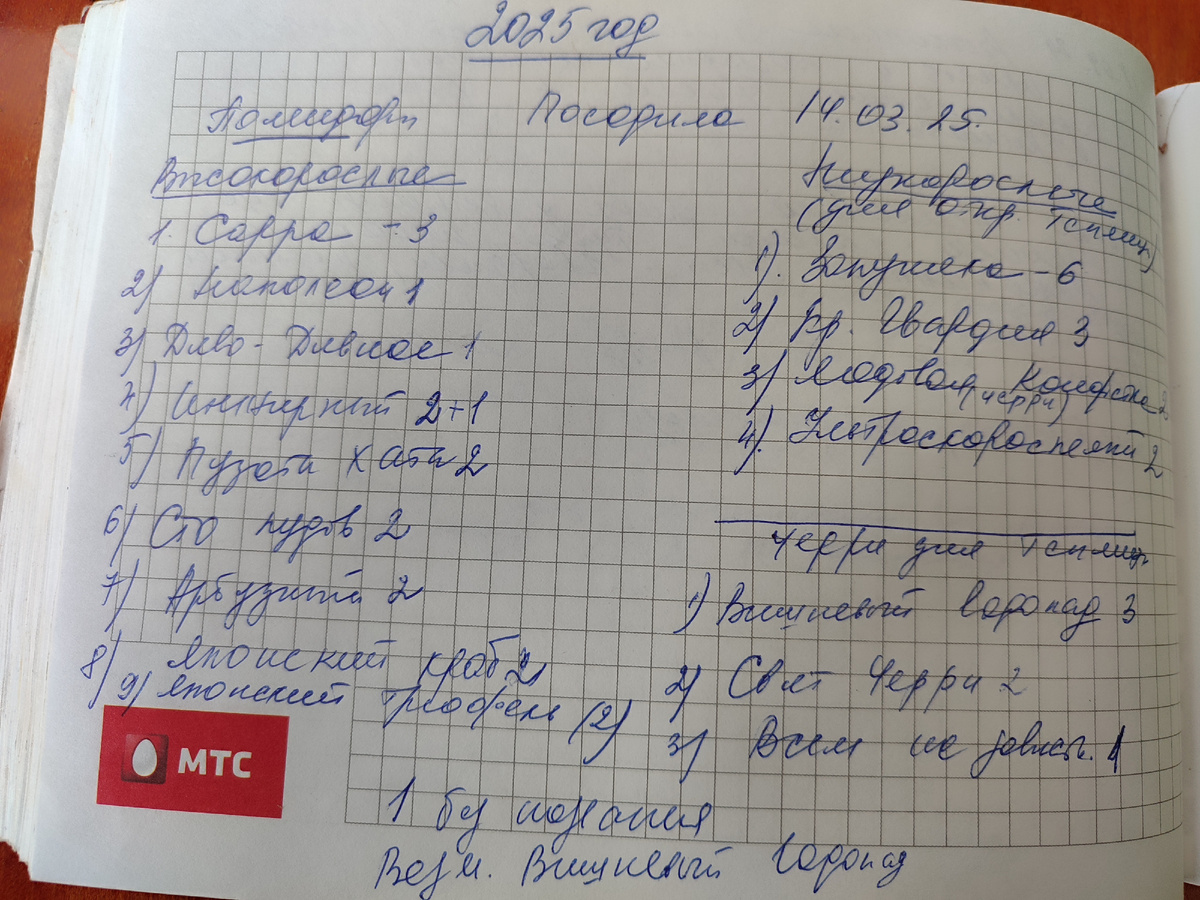 2025 год
Помидоры Посадила 14.03.25.
Высокорослые
1. Сарра - 3
2) Наполеон 1
3) Диво-Дивное 1
4) Инжирный 2+1
5) Пузата Хата 2
6) Сто пудов 2
7) Арбузный 2
8) Японский краб 2
9) Японский трюфель (2)
Низкорослые
(для откр. Теплиц)
1). Запуняка - 6
2) Кр. Гвардия 3
3) Медовая Конфетка 2
(черри)
4). Ультраскороспелый 2
Черри для Теплиц
1) Вишневый Водопад 3
2) Свит Черри 2
3) Всем на завист. 1
МТС
1 бу
Возм. Вишневый Водопад